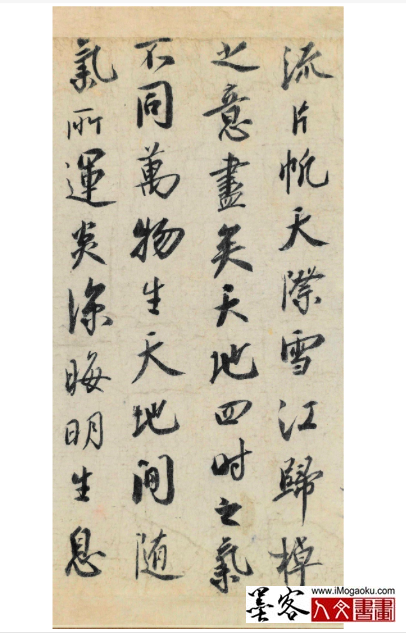 流片帆天際雪江歸棹
之意盡矣天地四时之氣
不同萬物生天地间随
氣所運炎涼晦明生息
www.iMogaoku.com
墨客
人文書畫